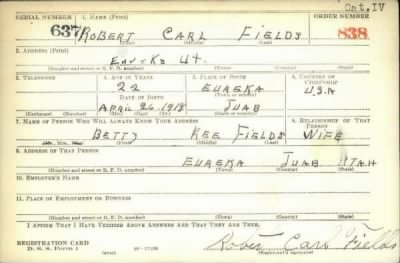 Cat. IV
SERIAL NUMBER 1. NAME (Print) ORDER NUMBER
637 ROBERT CARL FIELDS 838
(First) (Middle) (Last)
2. ADDRESS (Print)
EUREKA Ut.
(Number and street or R. F. D. number) (Town) (County) (State)
3. TELEPHONE 4. AGE IN YEARS 5. PLACE OF BIRTH 6. COUNTRY OF CITIZENSHIP
22 EUREKA U.S.A
DATE OF BIRTH (Town or county)
APRIL 26 1918 JUAB
(Exchange) (Number) (Mo.) (Day) (Yr.) (State or country)
7. NAME OF PERSON WHO WILL ALWAYS KNOW YOUR ADDRESS 8. RELATIONSHIP OF THAT PERSON
BETTY FIELDS WIFE
(Mr., Mrs., Miss) (First) (Middle) (Last)
9. ADDRESS OF THAT PERSON
EUREKA JUAB UTAH
(Number and street or R. F. D. number) (Town) (County) (State)
10. EMPLOYER'S NAME
11. PLACE OF EMPLOYMENT OR BUSINESS
(Number and street or R. F. D. number) (Town) (County) (State)
I AFFIRM THAT I HAVE VERIFIED ABOVE ANSWERS AND THAT THEY ARE TRUE.
REGISTRATION CARD
D. S. S. FORM 1 Robert Carl Fields
(Registrant's signature)